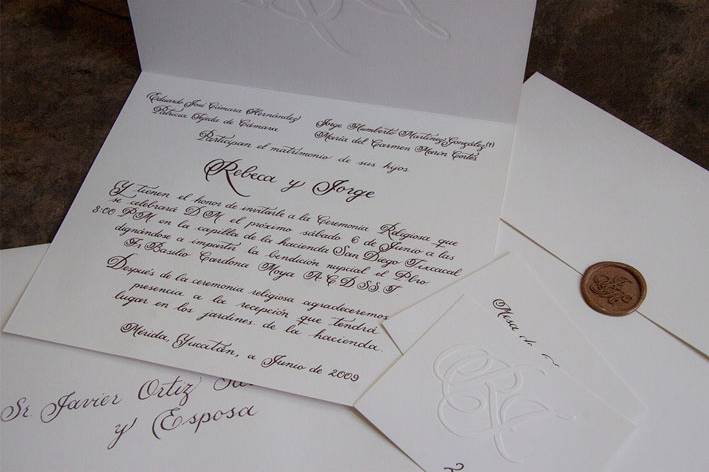 Eduardo José Cámara Hernández
Patricia Tejada de Cámara
Jorge Humberto Martínez González (†)
María del Carmen Marín Cortés
Participan el matrimonio de sus hijos
Rebeca y Jorge
Y tienen el honor de invitarle a la Ceremonia Religiosa que
se celebrará D.M. el próximo sábado 6 de Junio a las
8:00 P.M. en la capilla de la hacienda San Diego Tixcacal
dignándose a impartir la bendición nupcial el Pbro
Basilio Cardona Moya
Después de la ceremonia religiosa agradeceremos
presencia a la recepción que tendrá
lugar en los jardines de la hacienda.
Mérida, Yucatán, a Junio de 2009
Sr Javier Ortiz
y Esposa
Mesa de